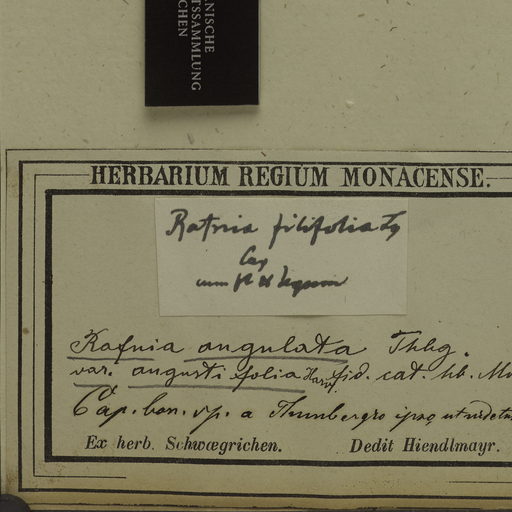 NISCHE
TSSAMMLUNG
CHEN
HERBARIUM REGIUM MONACENSE.
Rafnia filifolia Tg
Cap
Rafnia angulata Thbg.
var. angustifolia Harv. fid. cat. hb. Mo
Cap. bon. sp. a Thunbergio ipso, ut videtur
Ex herb. Schwægrichen. Dedit Hiendlmayr.